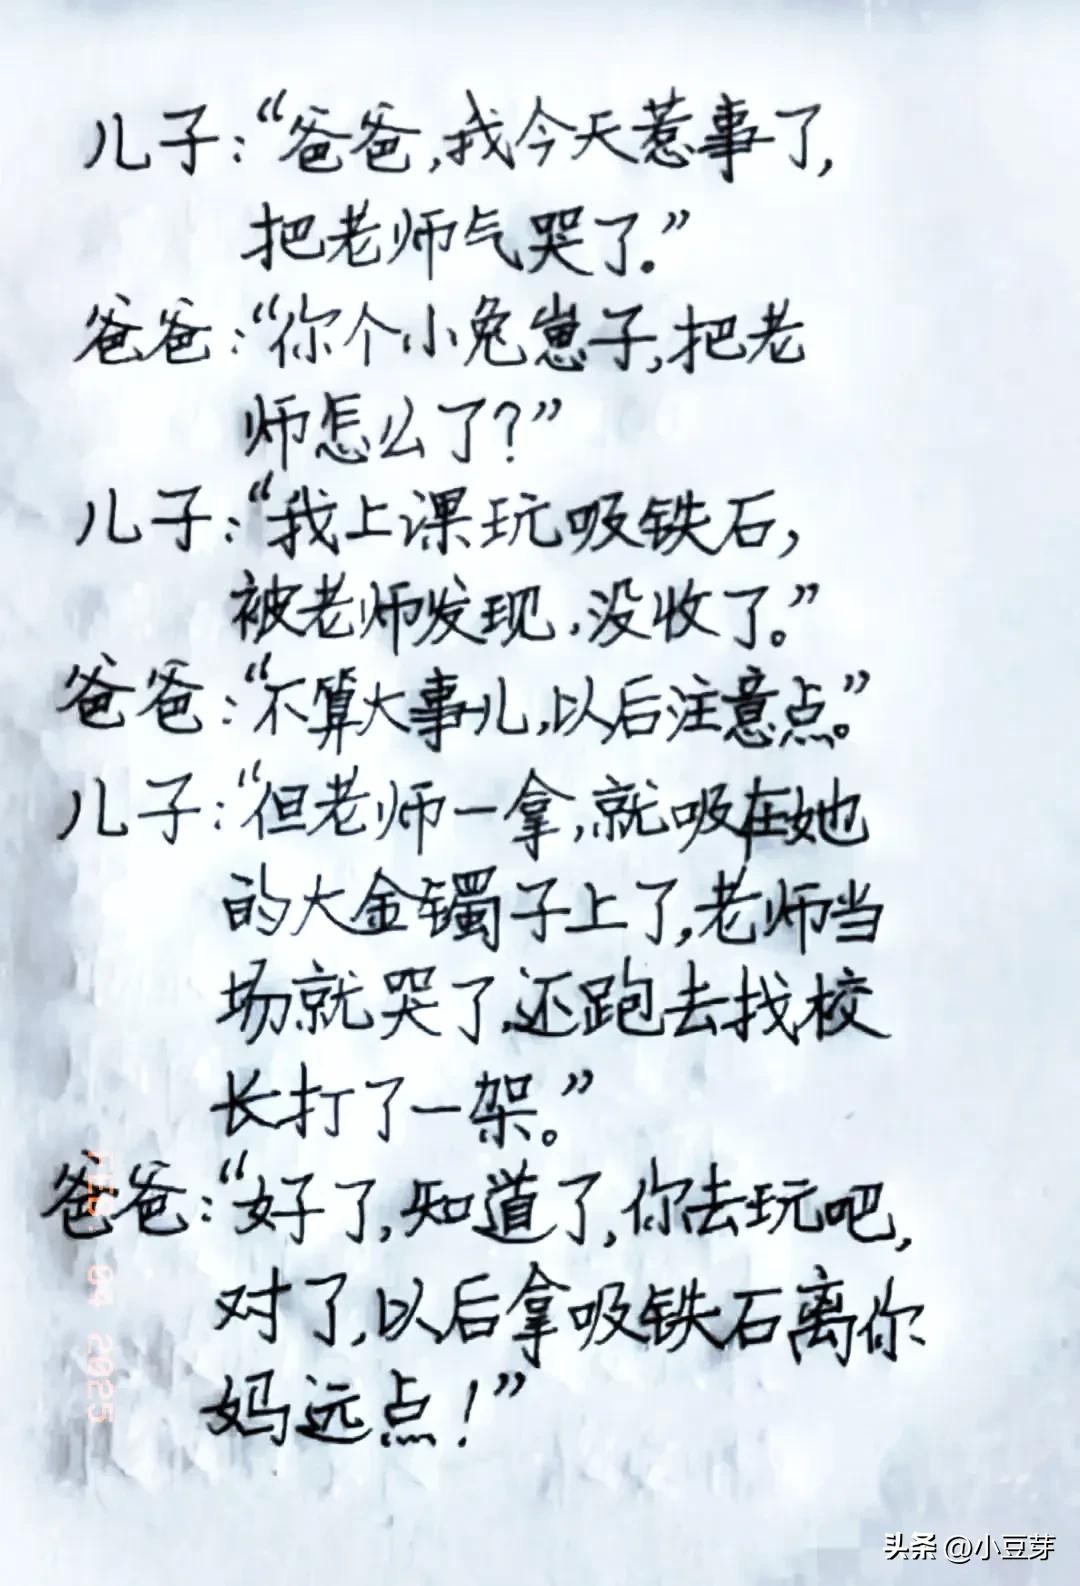 儿子：“爸爸，我今天惹事了，
把老师气哭了。”
爸爸：“你个小兔崽子，把老
师怎么了？”
儿子：“我上课玩吸铁石，
被老师发现，没收了。”
爸爸：“不算大事儿，以后注意点。”
儿子：“但老师一拿，就吸在她
的大金镯子上了，老师当
场就哭了，还跑去找校
长打了一架。”
爸爸：“好了，知道了，你去玩吧，
对了，以后拿吸铁石离你
妈远点！”
FEB. 04 2025
头条 @小豆芽